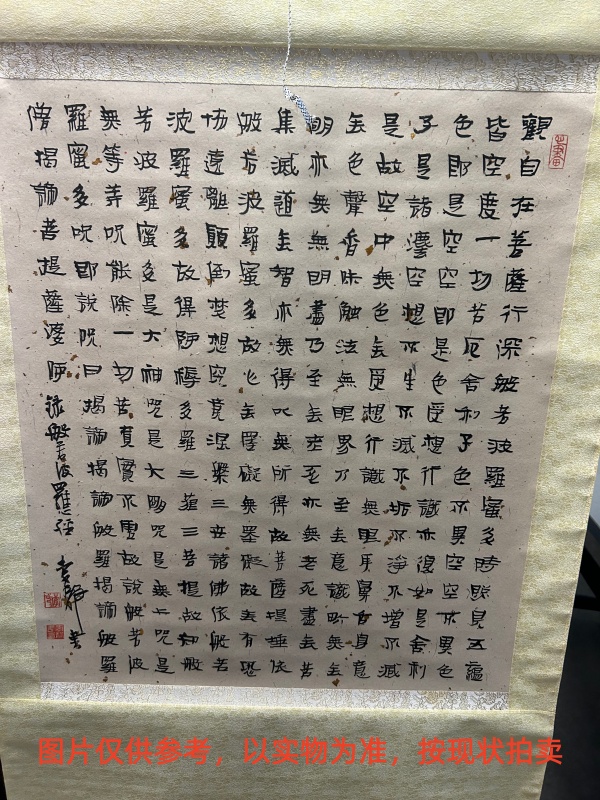 觀自在菩薩行深般若波羅蜜多時照見五蘊
皆空度一切苦厄舍利子色不異空空不異色
色即是空空即是色受想行識亦復如是舍利
子是諸灋空想不生不滅不垢不淨不增不減
是故空中無色无受想行識無眼耳鼻舌身意
无色聲香味觸法無眼界乃至无意識界無無
明亦無無明盡乃至无老死亦無老死盡无苦
集滅道无智亦無得以無所得故菩薩提埵依
般若波羅蜜多故心无罣礙無罣礙故无有恐
怖遠離顛倒夢想究竟涅槃三世諸佛依般若
波羅蜜多故得阿耨多羅三藐三菩提故知般
若波羅蜜多是大神咒是大明咒是無上咒是
無等等咒能除一切苦真實不虛故說般若波
羅蜜多咒即說咒曰揭諦揭諦般羅揭諦般羅
僧揭諦菩提薩婆訶 錄般若波羅心經 書
图片仅供参考，以实物为准，按现状拍卖